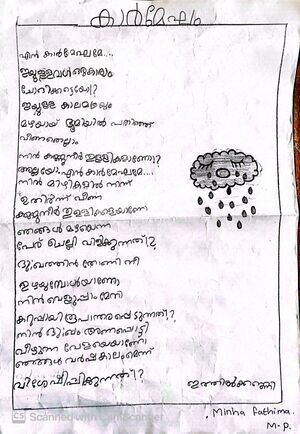 കാർമേഘം
എൻ കാർമേഘമേ...
ഇരുളമായൊരുകാര്യം
ചോദിക്കട്ടെയോ!?
ഇരുള കാലമത്രയും
മഴയായ് ഭൂമിയിൽ പതിഞ്ഞു
വീണതെല്ലാം
നിൻ കണ്ണുനീർ തുള്ളികളാണോ?
അല്ലയോ, എൻ കാർമേഘമെ...
നിൻ മിഴികളിൽ നിന്ന്
ഉതിർന്നു വീണ
കണ്ണുനീർ തുള്ളികളെയാണോ
ഞങ്ങൾ മഴയെന്ന
പേര് ചൊല്ലി വിളിക്കുന്നത്!?
ദുഃഖത്തിൻ തോണി നീ
തുഴയുമ്പോൾയാണോ
നിൻ വെളുപ്പാം മേനി
കറുപ്പായി രൂപാന്തരപ്പെടുന്നത്!?
നിൻ ദുഃഖം അണപൊട്ടി
വീഴുന്ന വേളയെയാണോ
ഞങ്ങൾ വർഷകാലംമെന്ന്
വിശേഷിപ്പിക്കുന്നത്!?
Minha fathima.
M.P.
CS Scanned with CamScanner